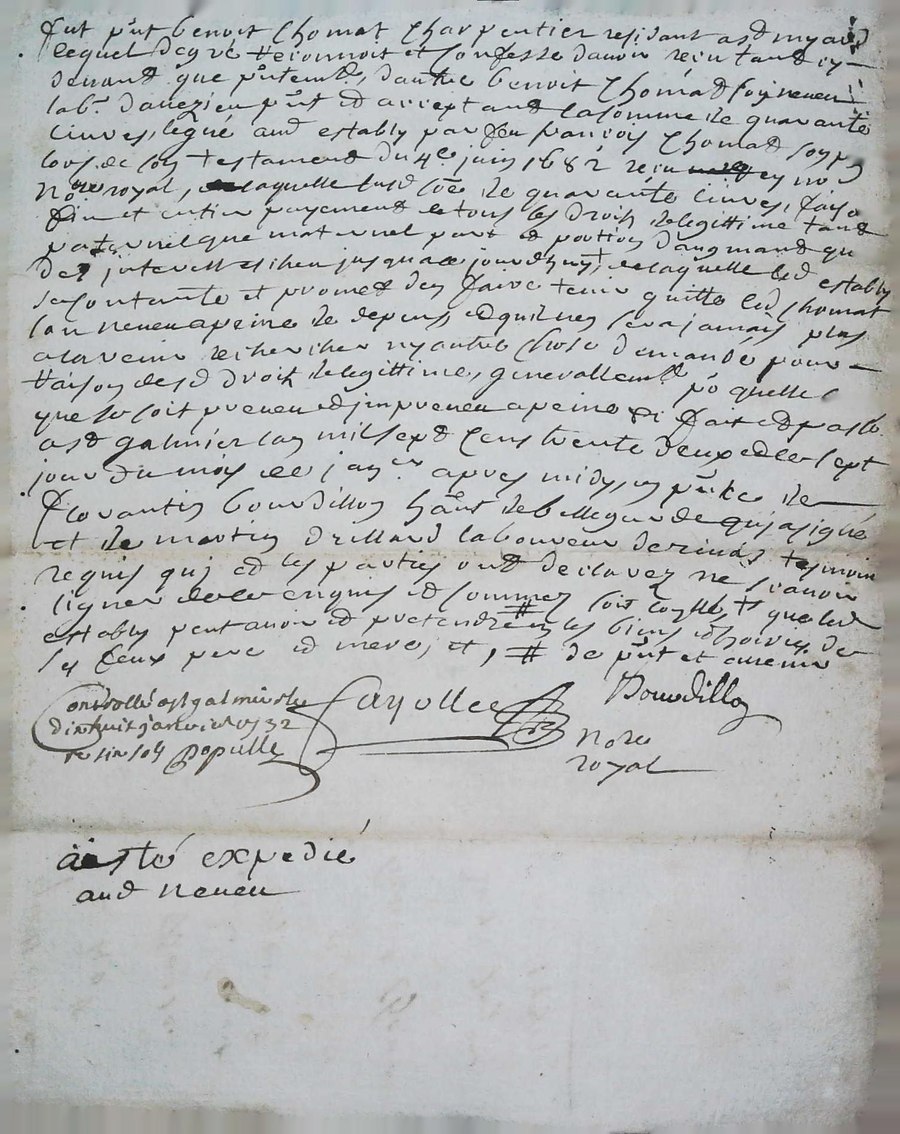 fut pnt benoit Chomat Charpentier residant a st myard
lequel de gré reconnoit et Confesse davoir receu tant cy
devant que pntemt, dautre benoit Chomat son neveu
labr davezieu pnt et acceptant la somme de quarante
livres, legué aud estably par feu francois Chomat son p
lors de son testament du 4e juin 1682 receu par moy no
Nore royal, de laquelle susd soe de quarante livres, faiso
fin et entier payement de tous les droits de legittime tant
paternel que maternel part et portion daugmand qu
des interests diceux jusqua ce jourdhuy, de laquelle led estably
se contante et promet den faire tenir quitte led Chomat
son neveu a peine de depens, et quil ne sera jamais plus
a lavenir rechercher ny autre chose demandé pour
raison desd droit de legittime, generallemt po quelle
que se soit preveu et impreveu a peine &c fait et passé
a st galmier lan mil sept cens trente deux et le sept
jour du mois de janer apres midy, en pnce de
florantin bourdillon hant de bellegarde qui a signé
et de martin drillard laboureur de rivas tesmoin
requis qui et les parties ont declarez ne scavoir
signer de ce enquis et sommez # soit cayllé, &c que led
estably peut avoir et pretendre en les biens et hoiries de
ses feux pere et mere, et, # de pnt et avenir
Controllé a st galmier le
dixhuit janvier 1732
re six sols Populle
Fayolle
Bourdillon
Nore
royal
a esté expedié
aud neveu